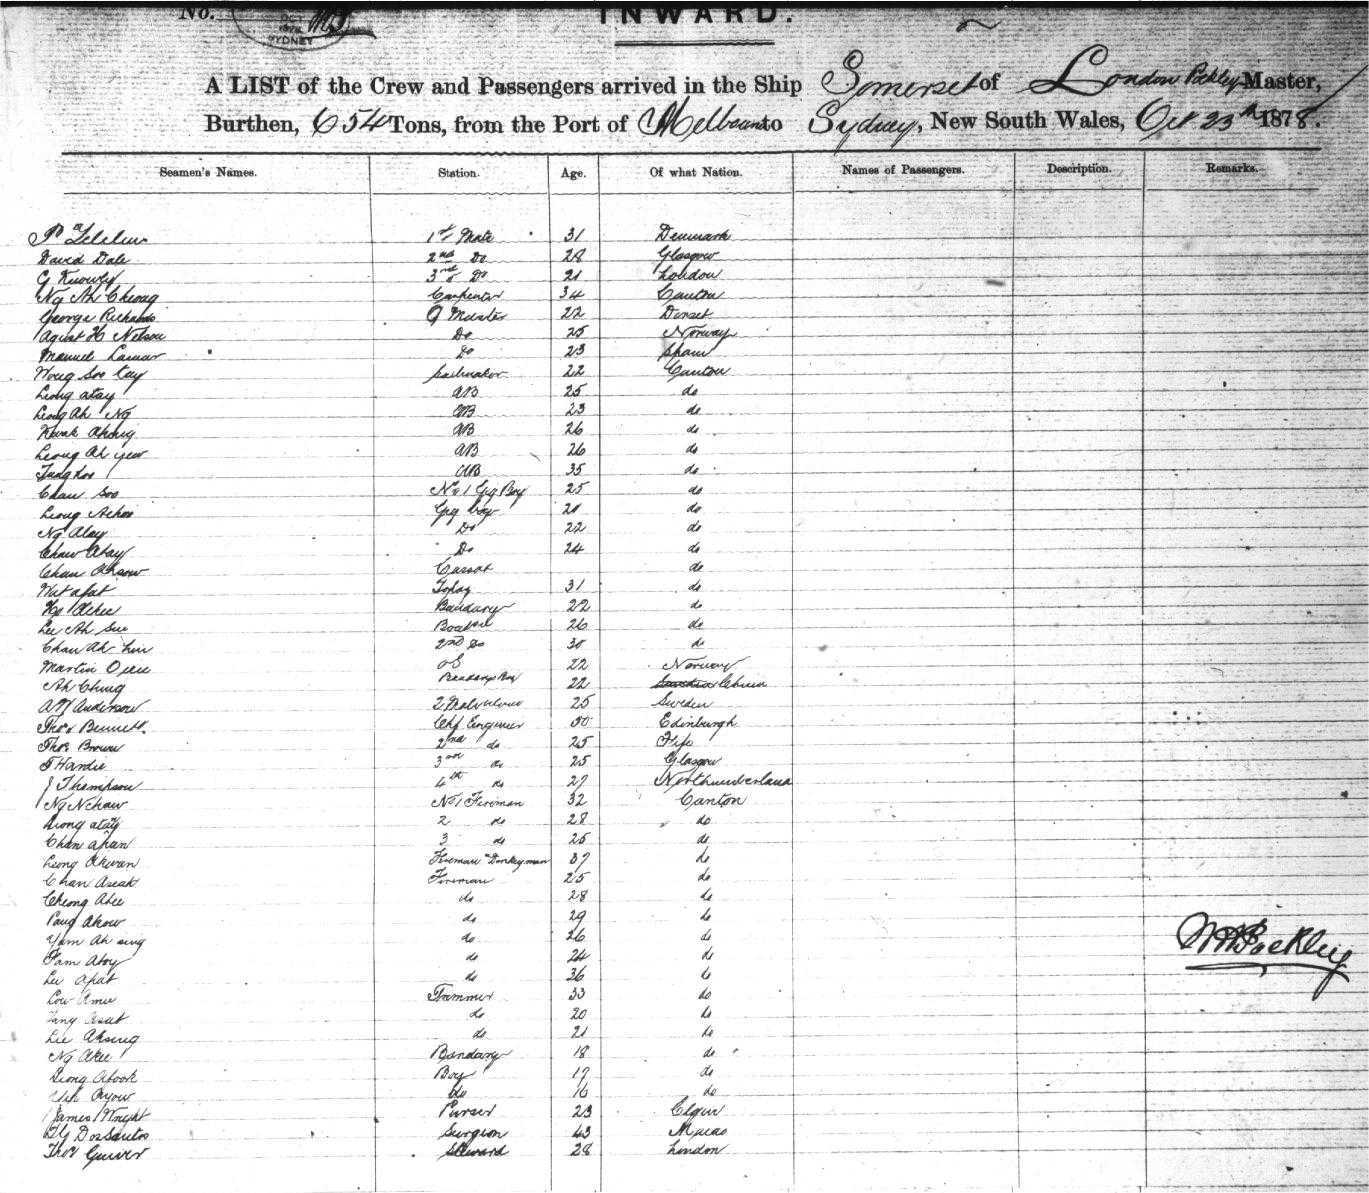 No.
SYDNEY
INWARD.
A LIST of the Crew and Passengers arrived in the Ship Somerset of London Pockley Master,
Burthen, 654 Tons, from the Port of Melbourne to Sydney, New South Wales, Oct 23rd 1878.
Seamen's Names. Station. Age. Of what Nation. Names of Passengers. Description. Remarks.
1st Mate 31 Denmark
David Dale 2nd Do 28 Glasgow
G 3rd Do 21 London
Ng Ah Cheong Carpenter 34 Canton
George Richards Q Master 22 Dorset
Agust H Nelson Do 25 Norway
Manuel Do 23 Spain
Wong Soo Kay Sailmaker 22 Canton
Leong atay AB 25 do
Leong Ah Ng AB 23 do
Kwok Akong AB 26 do
Leong Ah yew AB 26 do
AB 35 do
Chan Soo No 1 Boy 25 do
Leong Achoo boy 20 do
Ng Atay Do 22 do
Chaw Atay Do 24 do
Chan Cassab do
apat Topaz 31 do
Bandary 22 do
Lee Ah Sue 26 do
Chan Ah 2nd Do 30 do
Martin OS 22 Norway
Ah Chung Bandary Boy 22 Sweden China
Anderson 2 25 Sweden
Thos Bennett Chf Engineer 50 Edinburgh
Thos Brown 2nd do 25 Fife
T Hardie 3rd do 25 Glasgow
J Thompson 4th do 27 Northumberland
Ng Nchaw No 1 Fireman 32 Canton
Leong atay 2 do 28 do
Chan apan 3 do 25 do
Leong Akwan Fireman & Donkeyman 37 do
Chan Aseak Fireman 25 do
Cheong Atee do 28 do
Pang Akow do 29 do
Yam Ah sing do 26 do
Tam Atoy do 24 do
Lee apat do 36 do
Low Amee Trimmer 33 do
Tang Asat do 20 do
Lee Aksing do 21 do
Ng Akee Bandary 18 do
Leong Afook Boy 17 do
do 16 do
James Wright Purser 23 Elgin
Dos Santos Surgeon 43 Macao
Thos Steward 28 London
Pockley